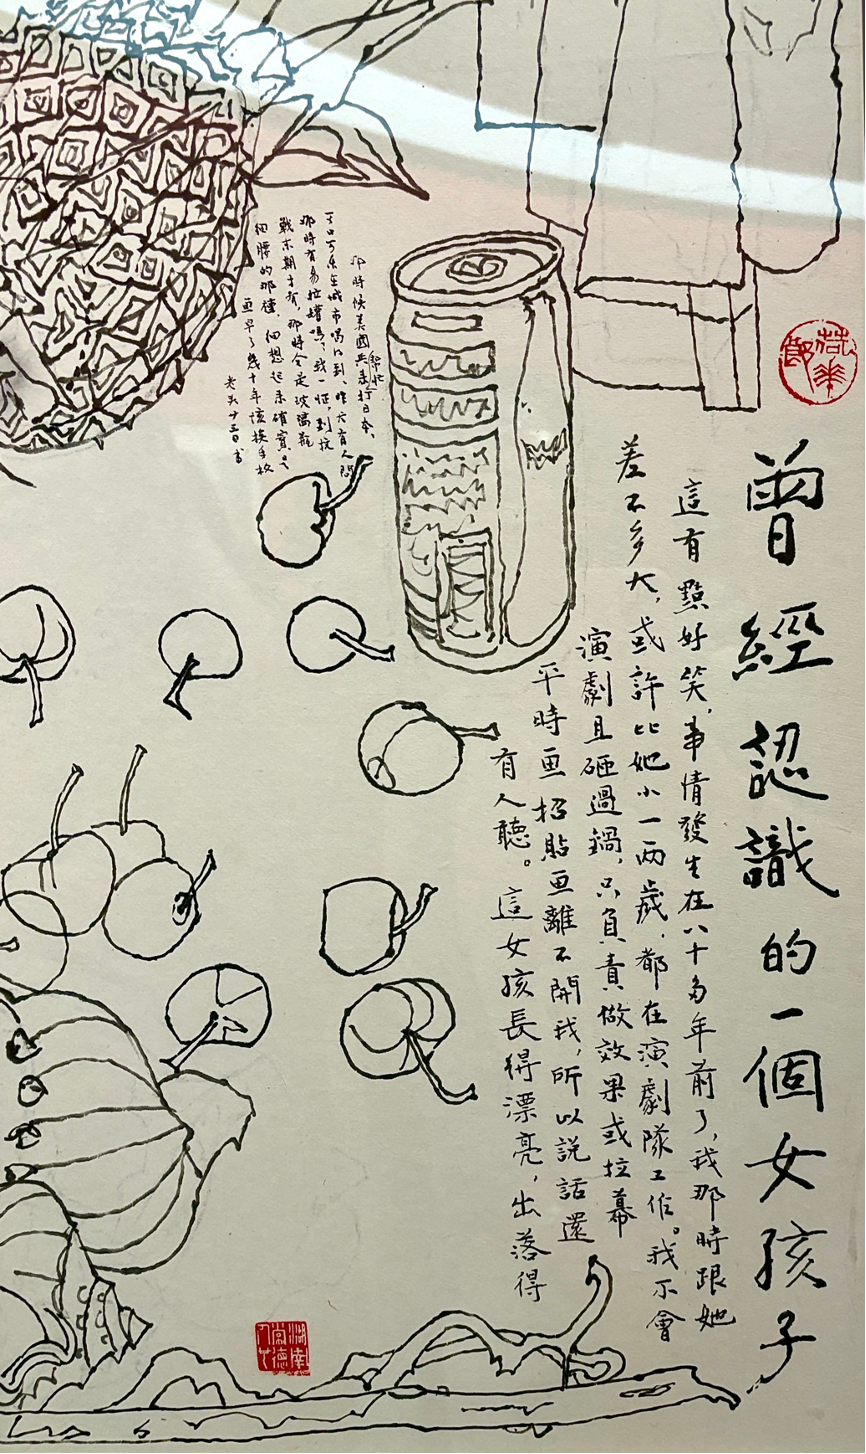 曾經認識的一個女孩子
這有點好笑，事情發生在八十多年前了，我那時跟她
差不多大，或許比她小一兩歲，都在演劇隊工作。我不會
演劇且砸過鍋，只負責做效果或拉幕
平時画招貼画離不開我，所以說話還
有人聽。這女孩長得漂亮，出落得
那時候美國兵幫忙來打日本、
可口可樂在城市喝得到、昨天有人問
那時有易拉罐嗎？我一怔，到抗
戰末期才有，那時全是玻璃瓶
細腰的那種，細想起來確實是
画早了幾十年該挨手板
老头廿三日書
湖南
常德